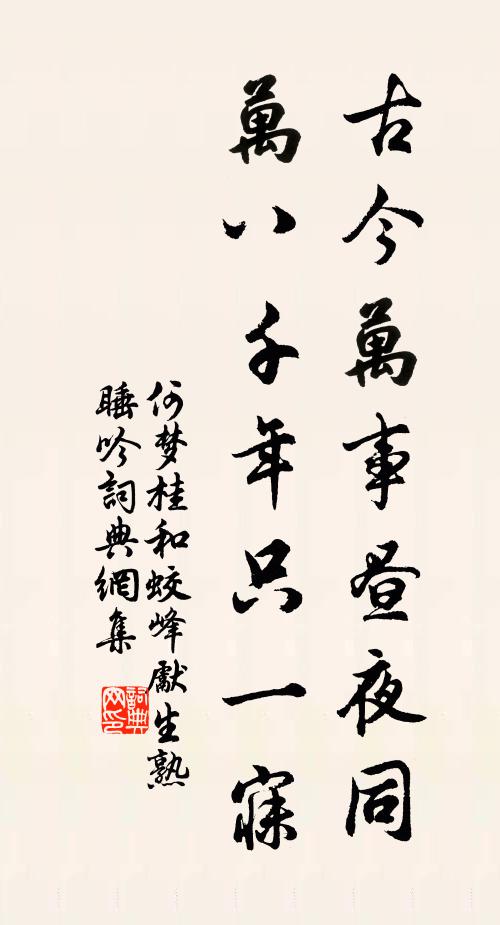 古今萬事晝夜同
萬八千年只一寐
何梦桂和蛟峰獻生熟
睡吟詞典網集
詞典网印